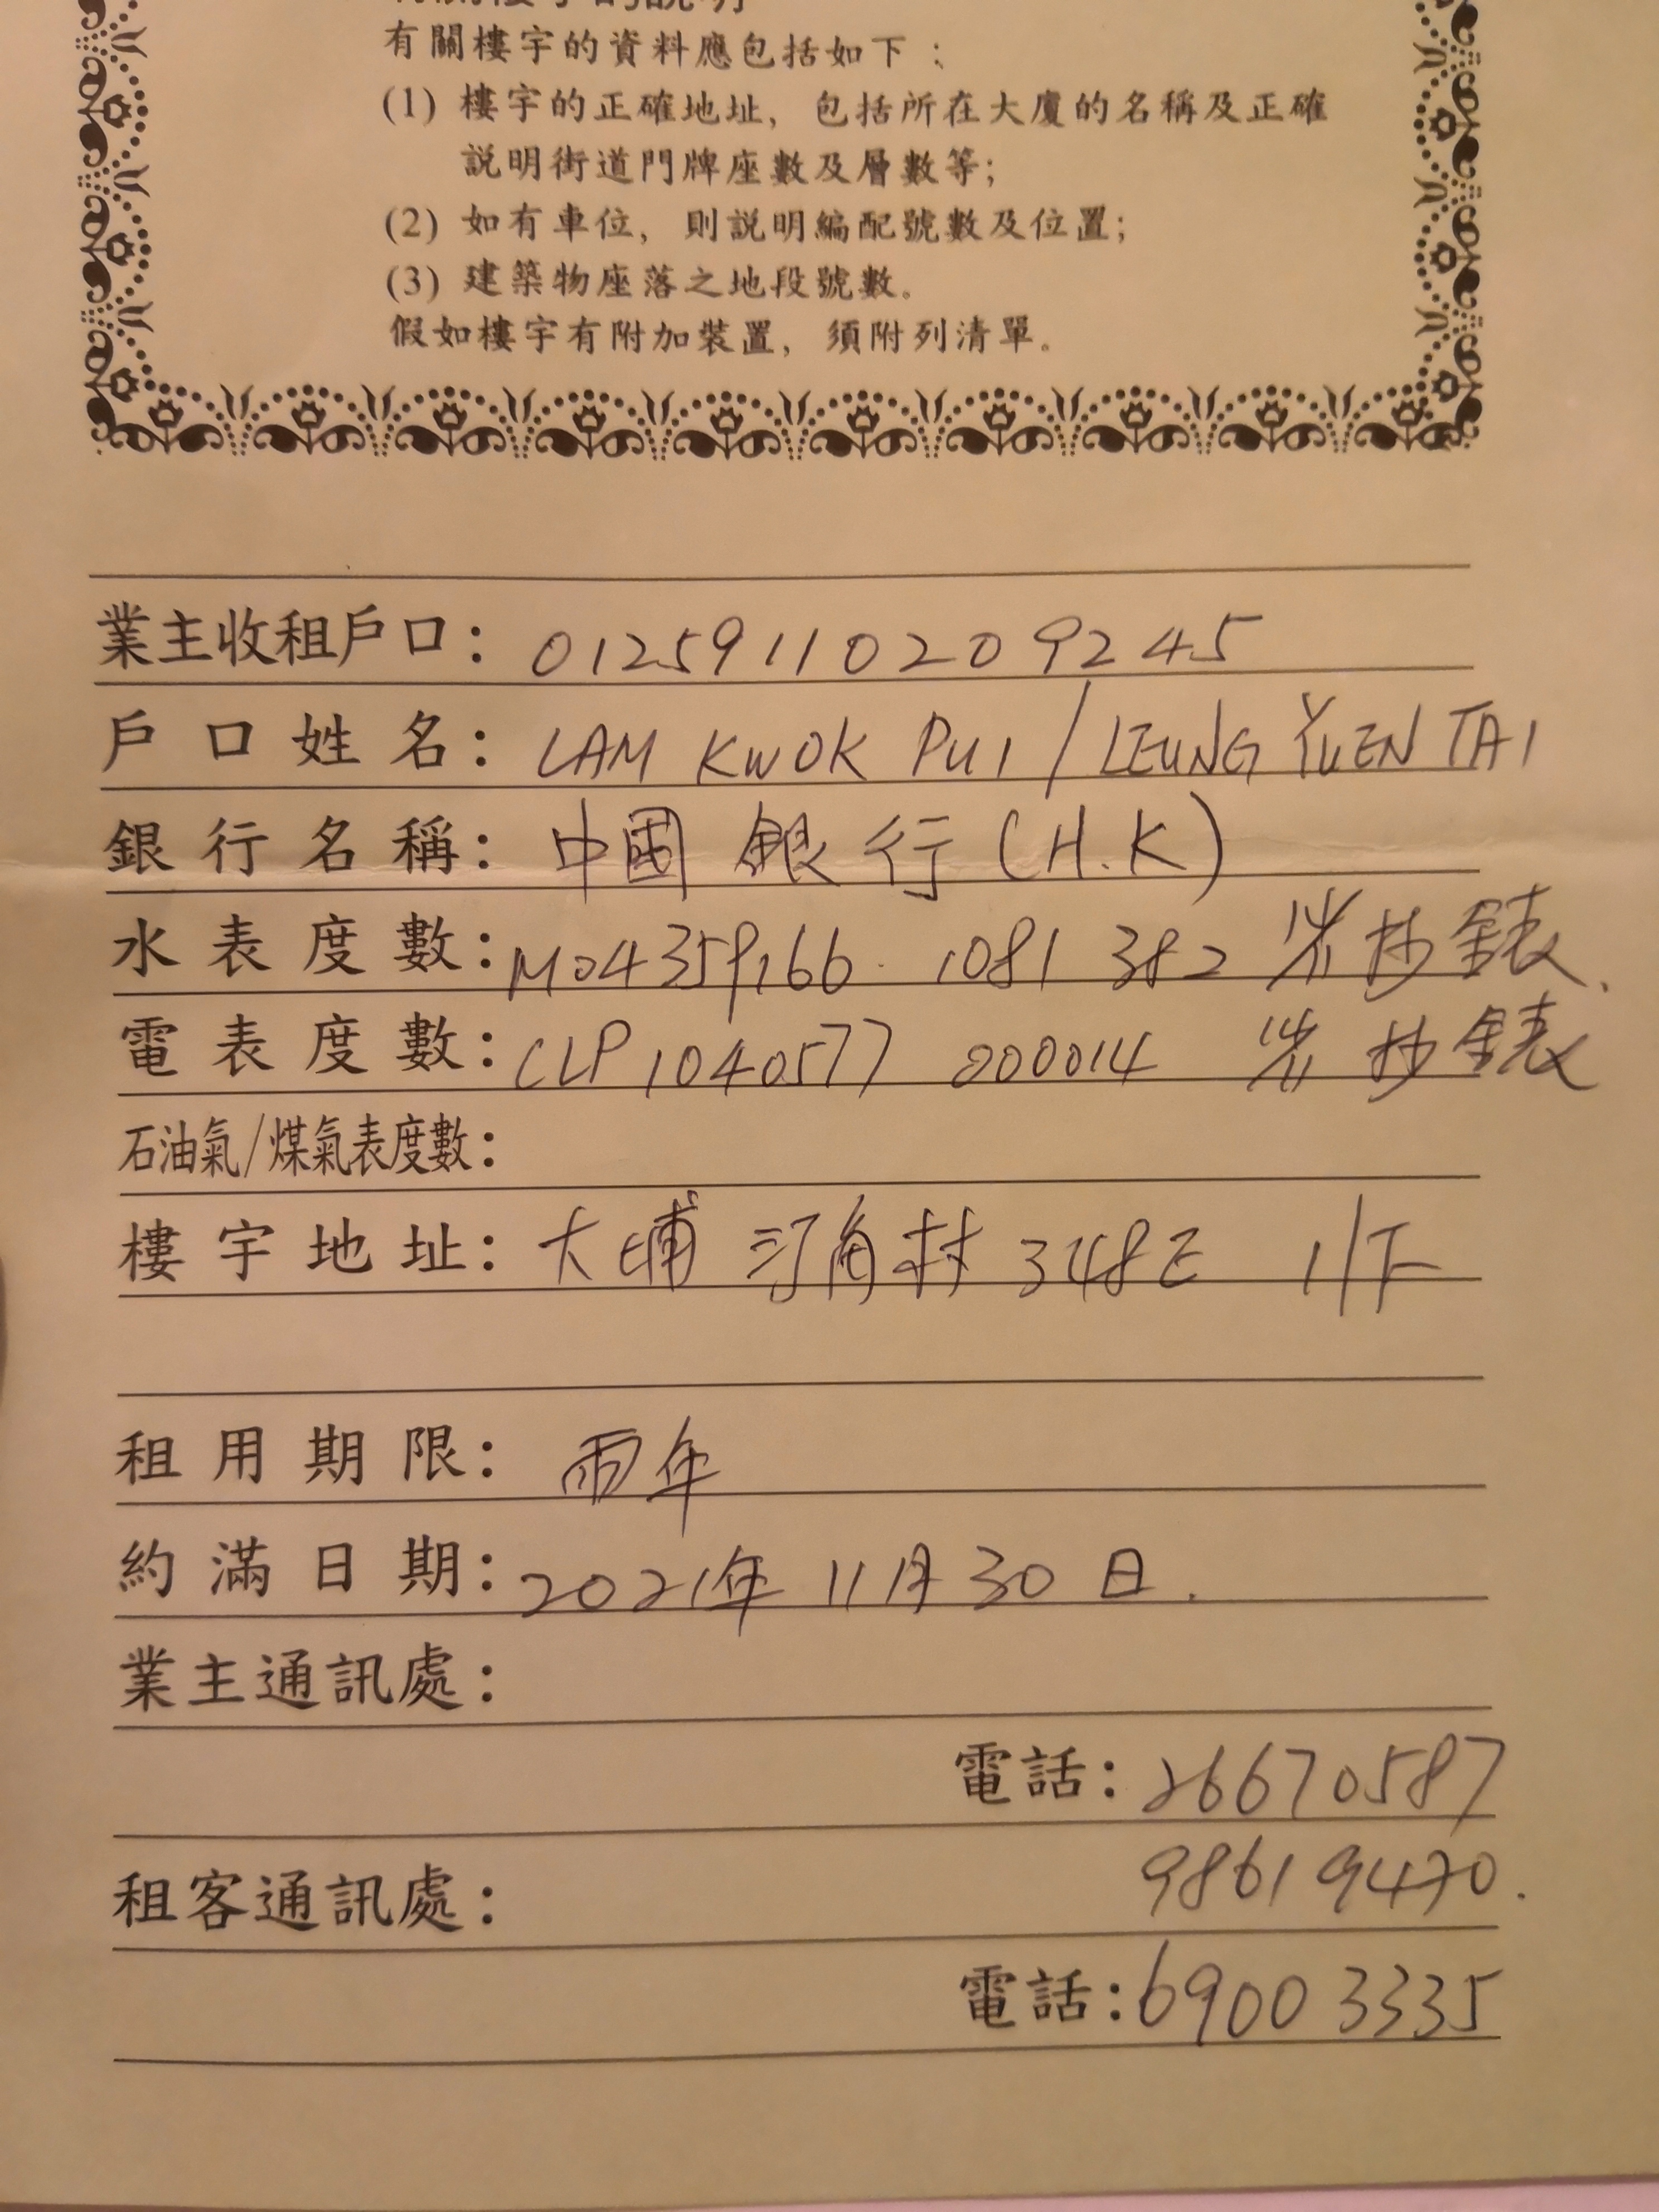 有關樓宇的說明
有關樓宇的資料應包括如下：
(1) 樓宇的正確地址，包括所在大廈的名稱及正確
說明街道門牌座數及層數等；
(2) 如有車位，則說明編配號數及位置；
(3) 建築物座落之地段號數。
假如樓宇有附加裝置，須附列清單。
業主收租戶口：01259110209245
戶口姓名：LAM KWOK PUI / LEUNG YUEN TAI
銀行名稱：中國銀行(H.K)
水表度數：M04359166 1081 382 抄錶.
電表度數：CLP1040577 000014 抄錶
石油氣/煤氣表度數：
樓宇地址：大埔汀角村 348E 1/F
租用期限：兩年
約滿日期：2021年11月30日.
業主通訊處：
電話：26670587
98619470.
租客通訊處：
電話：69003335